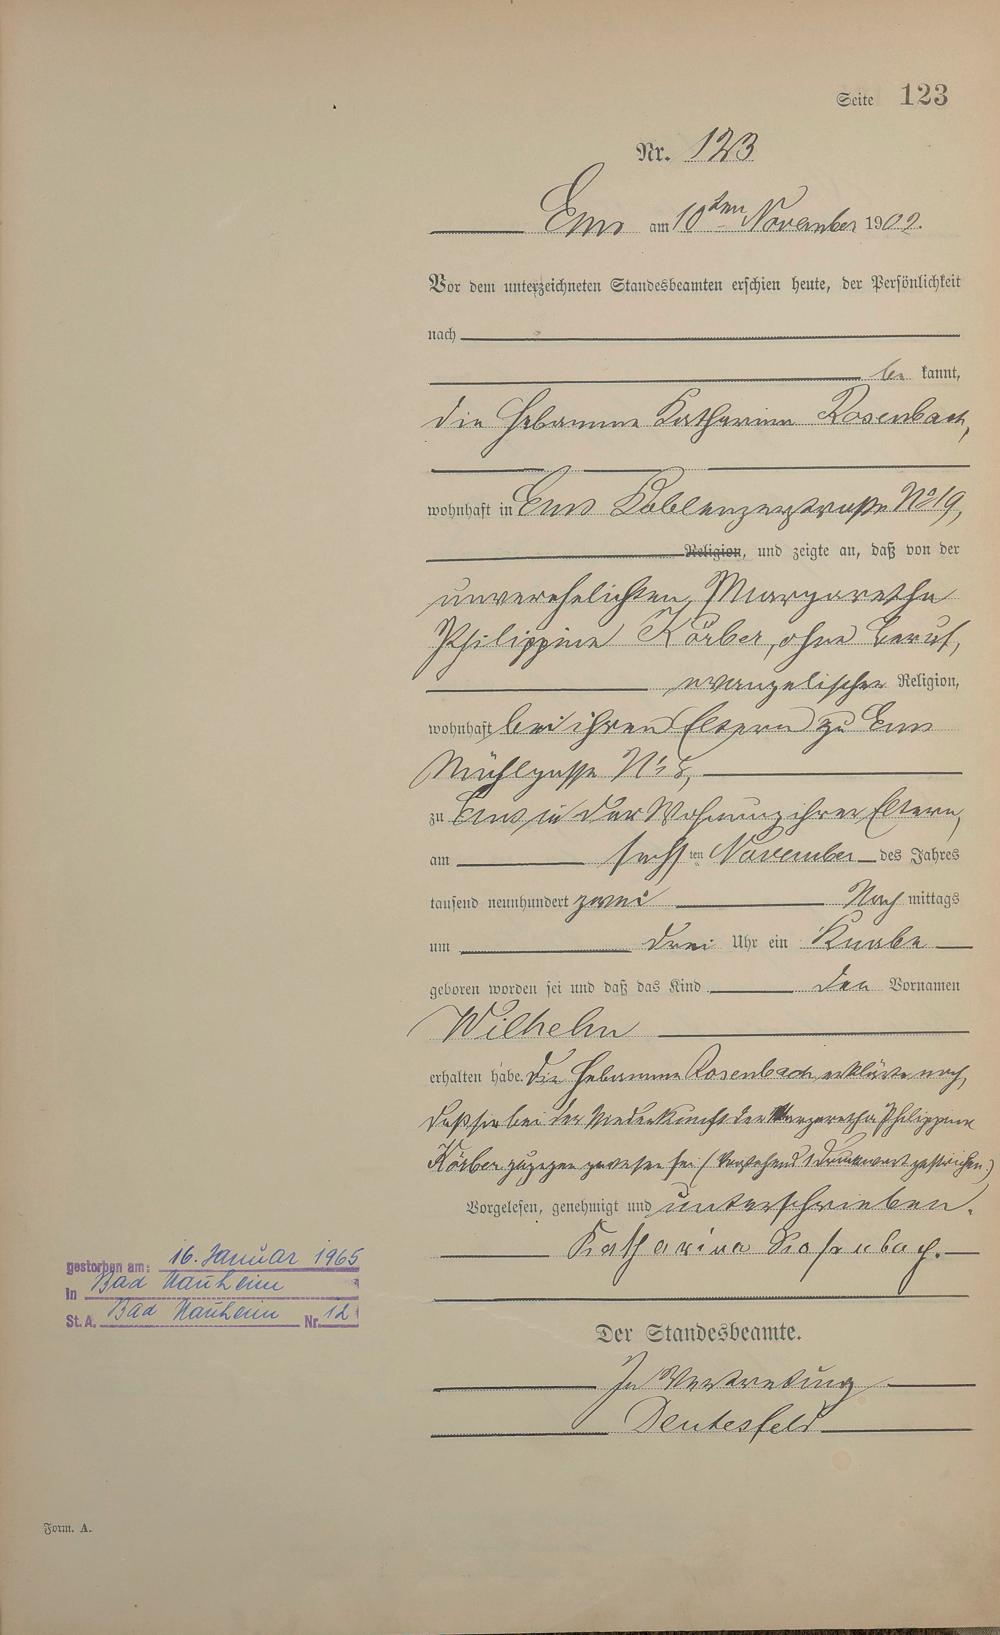 Seite 123
Nr. 123
Ems am 10ten November 1902.
Vor dem unterzeichneten Standesbeamten erschien heute, der Persönlichkeit
nach
be kannt,
die Hebamme Katharina Rosenbach,
wohnhaft in Ems Koblenzerstraße No 19,
Religion, und zeigte an, daß von der
unverehelichten Margaretha
Philippine Körber, ohne Beruf,
evangelischer Religion,
wohnhaft bei ihren Eltern zu Ems
Mühlgasse
zu Ems in der Wohnung ihrer Eltern,
am sechsten November des Jahres
tausend neunhundert zwei Nach mittags
um drei Uhr ein Knabe
geboren worden sei und daß das Kind den Vornamen
Wilhelm
erhalten habe. Die Hebamme Rosenbach erklärte noch,
daß sie bei der Niederkunft der Margaretha Philippine
Körber zugegen gewesen sei (Vorstehend 1 Druckwort gestrichen.)
Vorgelesen, genehmigt und unterschrieben.
Katharina Rosenbach.
gestorben am: 16. Januar 1965
in Bad Nauheim
St. A. Bad Nauheim Nr. 12
Der Standesbeamte.
In Vertretung
Deutesfeld
Form. A.